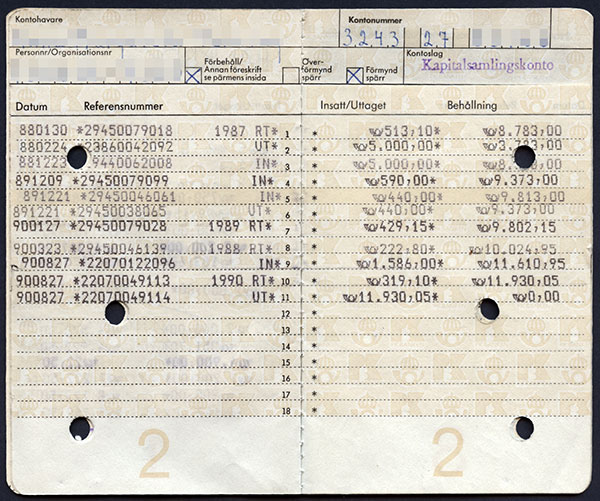 Kontohavare
Kontonummer
3243 27
Personnr/Organisationsnr
Förbehåll/
Annan föreskrift
se pärmens insida
Över-
förmynd
spärr
Förmynd
spärr
Kontoslag
Kapitalsamlingskonto
Datum Referensnummer Insatt/Uttaget Behållning
880130 *29450079018 1987 RT* 1 * 513,10* 8.783,00
880224 *23860042092 UT* 2 * 5.000,00* 3.783,00
881223 *9440062008 IN* 3 * 5.000,00*
891209 *29450079099 IN* 4 * 590,00* 9.373,00
891221 *29450046061 IN* 5 * 440,00* 9.813,00
891221 *29450038065 UT* 6 * 440,00* 9.373,00
900127 *29450079028 1989 RT* 7 * 429,15* 9.802,15
900323 *29450046139 1988 RT* 8 * 222,80* 10.024,95
900827 *22070122096 IN* 9 * 1.586,00* 11.610,95
900827 *22070049113 1990 RT* 10 * 319,10* 11.930,05
900827 *22070049114 UT* 11 * 11.930,05* 0,00
12 *
13 *
14 *
15 *
16 *
17 *
18 *
2 2